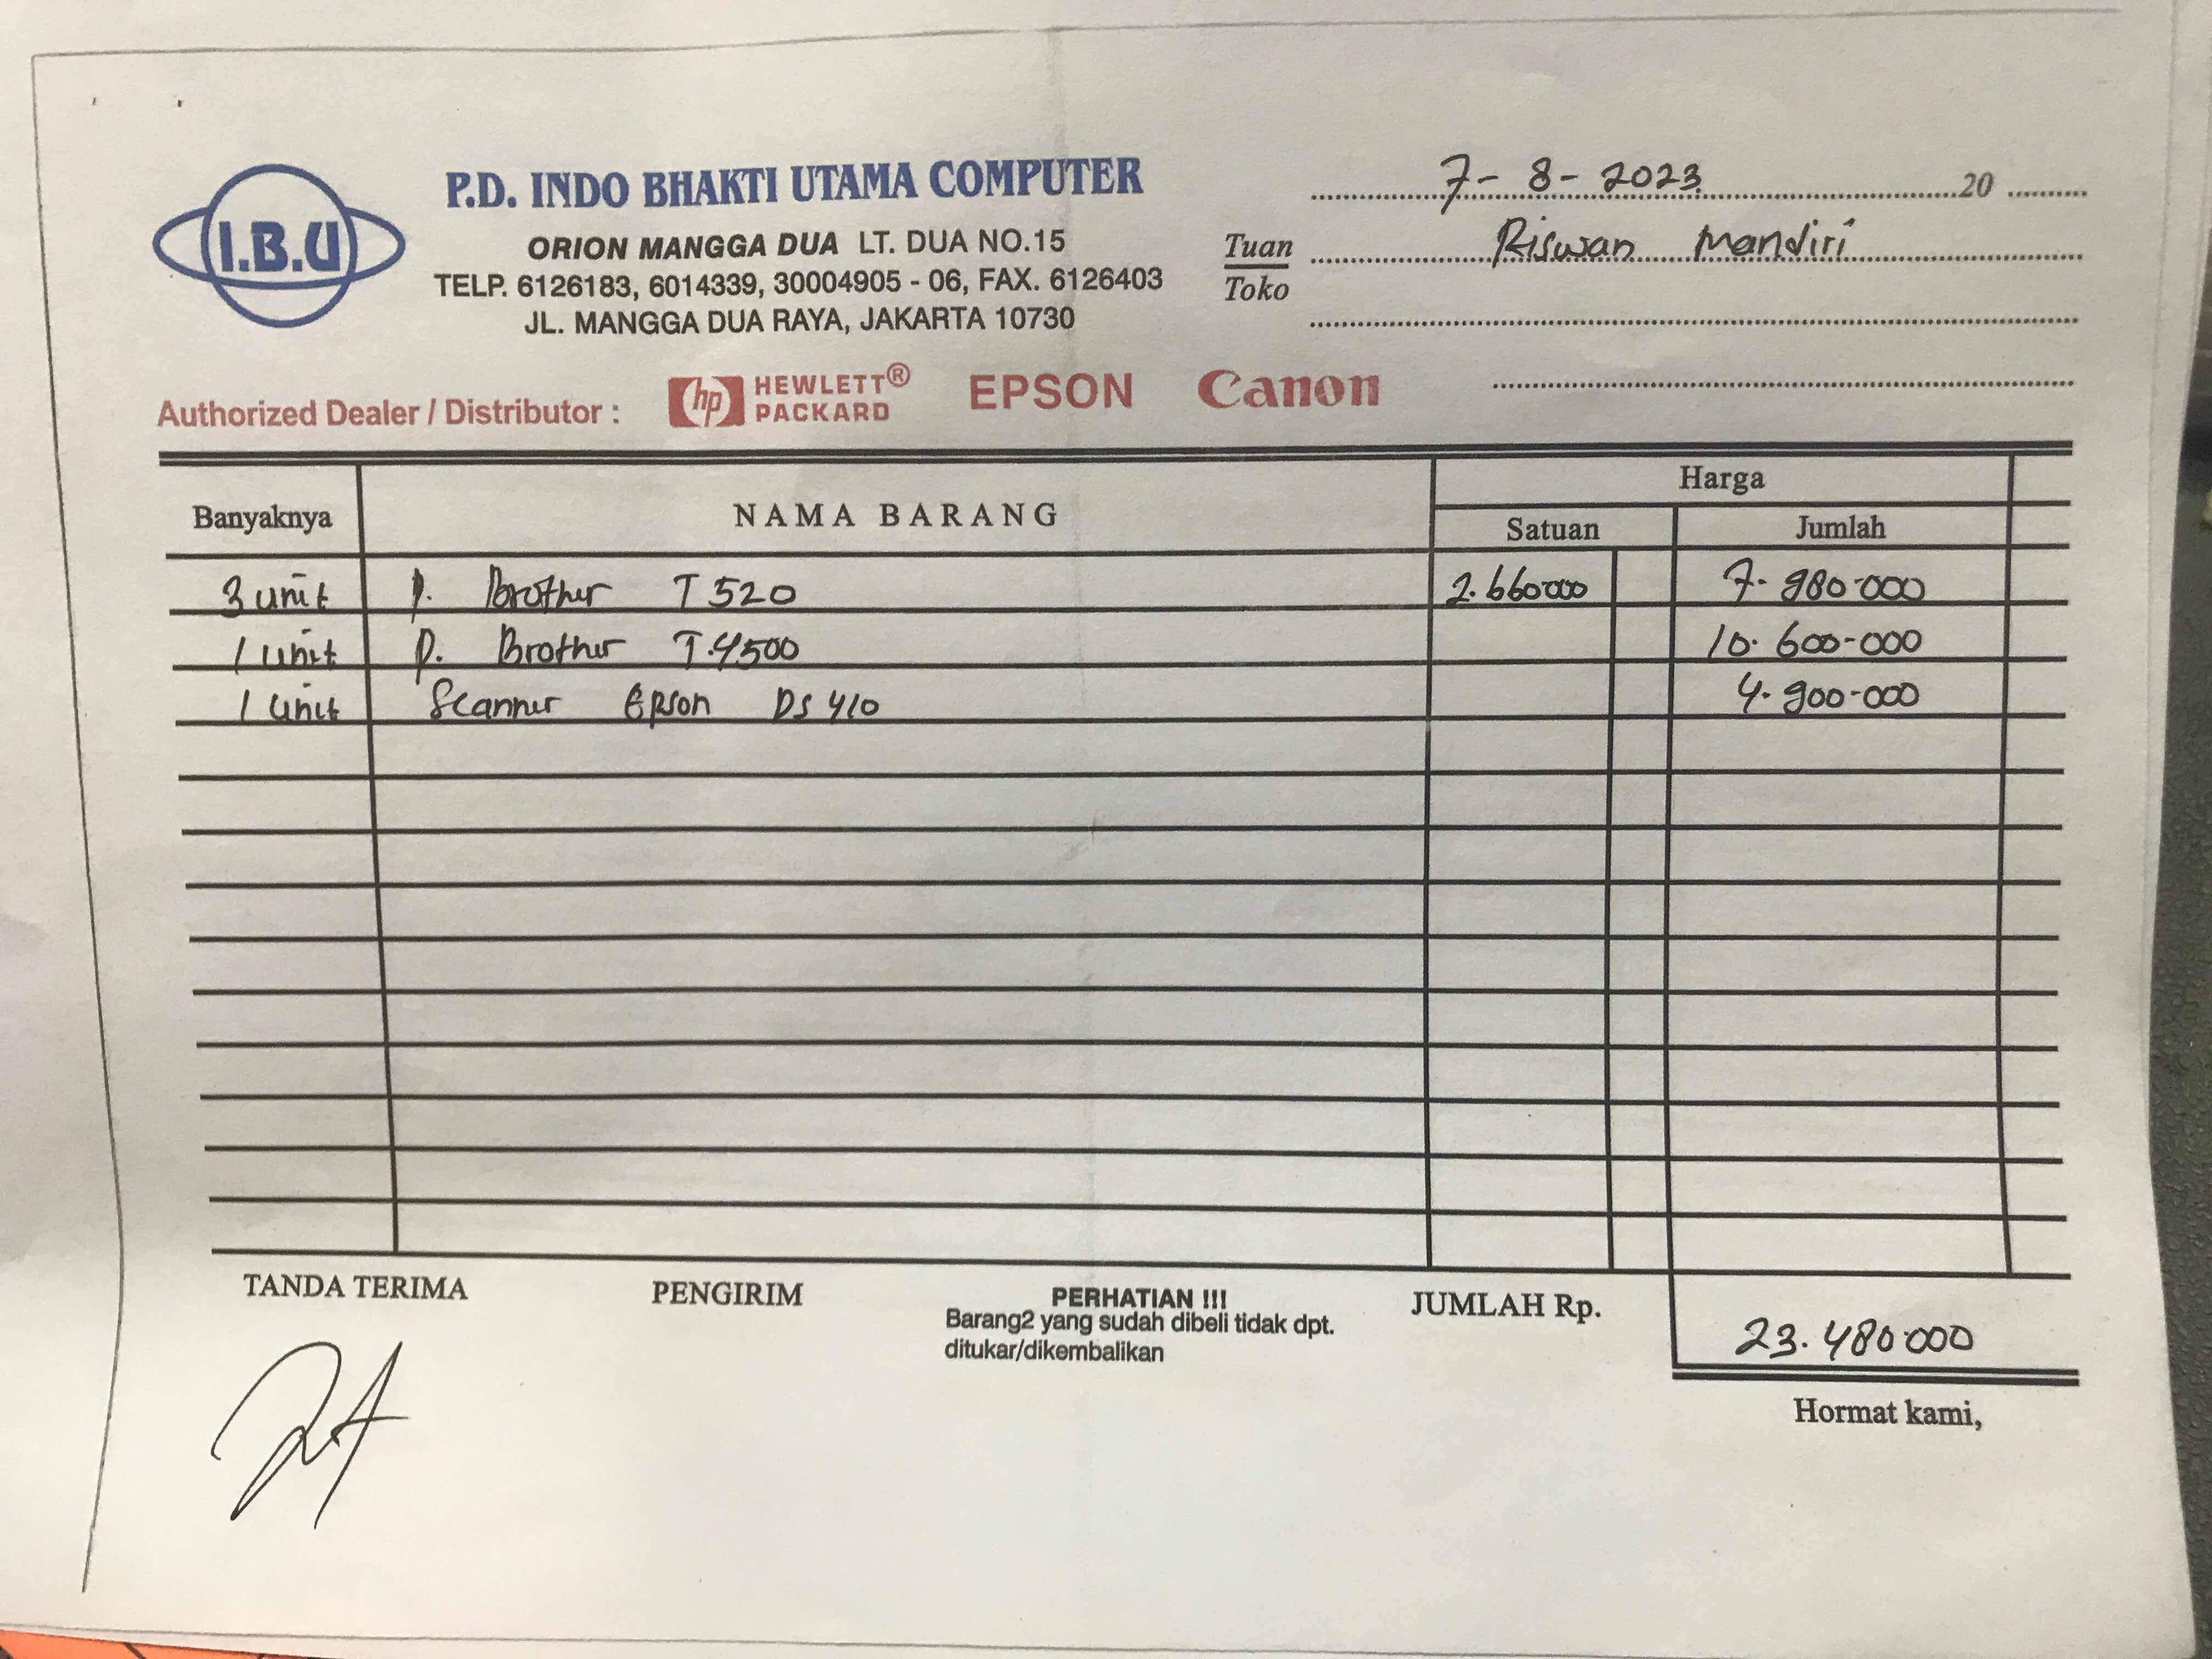 I.B.U
P.D. INDO BHAKTI UTAMA COMPUTER
ORION MANGGA DUA LT. DUA NO.15
TELP. 6126183, 6014339, 30004905 - 06, FAX. 6126403
JL. MANGGA DUA RAYA, JAKARTA 10730
7 - 8 - 2023 20
Tuan Riswan Mandiri
Toko
Authorized Dealer / Distributor : hp HEWLETT® PACKARD EPSON Canon
Banyaknya NAMA BARANG Harga
Satuan Jumlah
3 unit P. Brother T 520 2.660000 7.980.000
1 unit P. Brother T.4500 10.600-000
1 unit Scanner Epson DS 410 4.900-000
TANDA TERIMA PENGIRIM PERHATIAN !!! JUMLAH Rp.
Barang2 yang sudah dibeli tidak dpt.
ditukar/dikembalikan
23.480.000
Hormat kami,